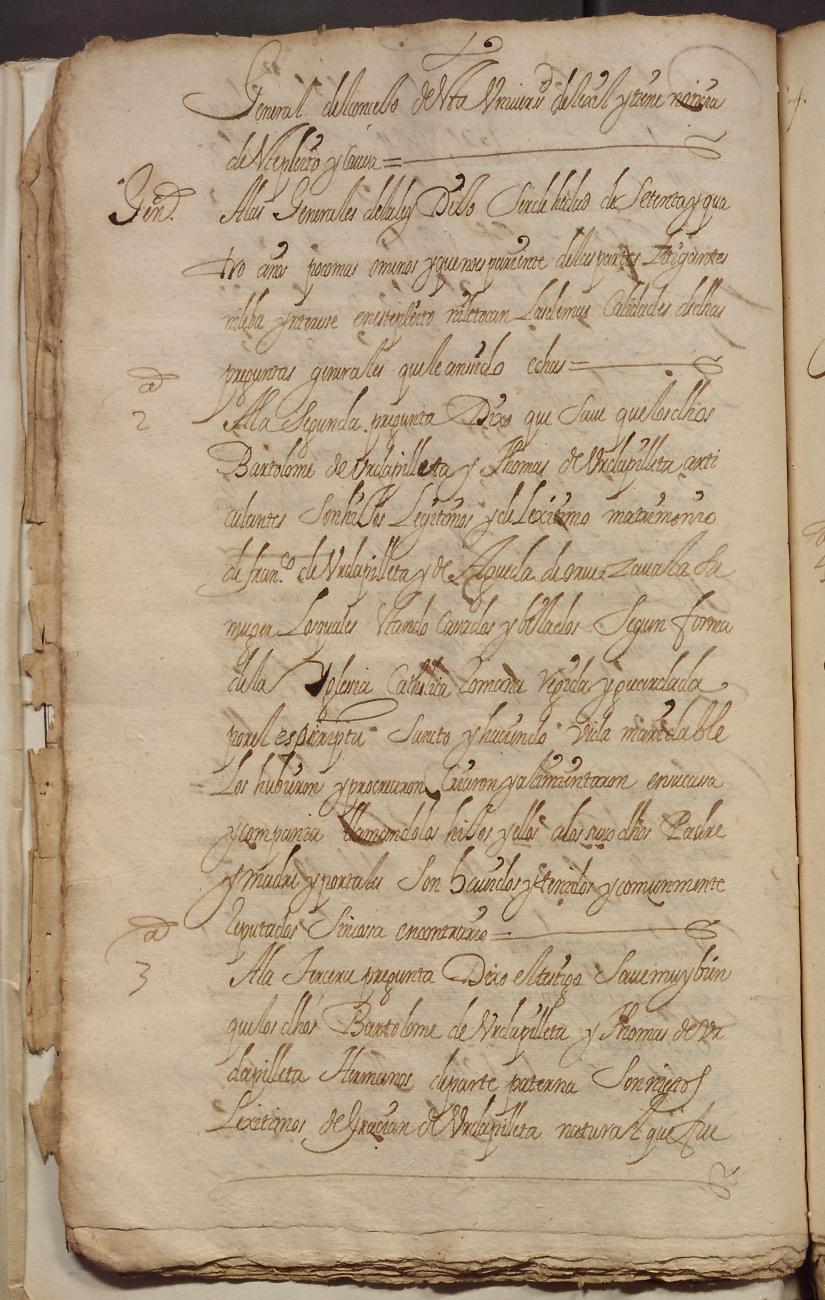 General del concello de Vta Vniversd de lexil y tiene noticia
de Vte pleito y Caussa =
Genl. Alas Generales dela ley Dixo Ser de hedad de Setenta y qua
tro años poco mas o menos y que no es pariente delas partes litigantes
nileba ynterese en este pleito niletocan Lasdemas Calidades delas
preguntas generales quele an sido echas =
ad
2 Ala Segunda pregunta Dixo que Save quelos dhos
Bartolome de Vrdapilleta y Thomas de Vrdapilleta arti
culantes Son hillos Legitimos y de Lexitimo matrimonio
de franco. de Vrdapilleta y de Agueda de oruezauala su
muger Losquales Vtando Casados y bellados Segun forma
dela Yglesia Catholica Romana regida y guardada
por el espiriptu Santo y haciendo Vida maridable
Los hubieron y procrearon Criaron y alimentaron en su casa
y compania llamandolos hillos y ellos alos suso dhos Padre
y madre y portales Son hauidos y tenidos y comunmente
Reputados Sincosa encontrario =
ad
3 Ala Tercera pregunta Dixo el testigo Save muy bien
quelos dhos Bartolome de Vrdapilleta y Thomas de Vr
dapilleta Hermanos de parte paterna Son nietos
Lexitimos de Gracian de Vrdapilleta natural que fue